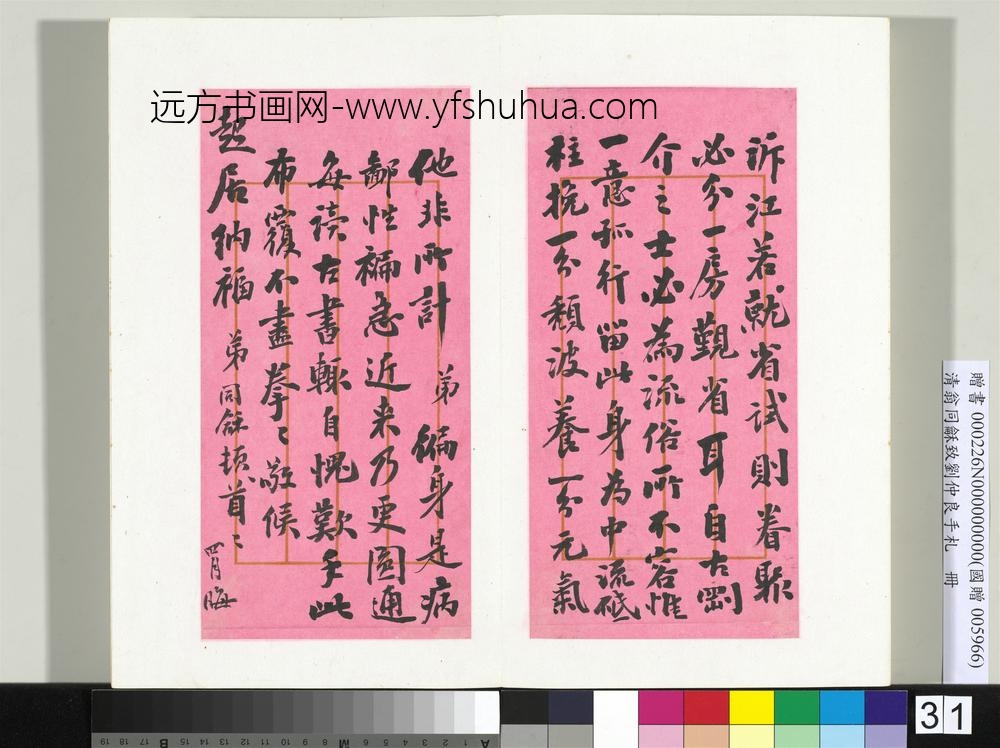 远方书画网-www.yfshuhua.com
訴江若就省试則眷聚
必分一房觐省耳自古剛
介之士必為流俗所不容惟
一意孤行留此身为中流砥
柱挽一分頹波養一分元氣
他非所計弟編身是病
鄙性褊急近来乃更圓通
每读古書輒自愧歎手此
布覆不盡拳〻敬候
起居纳福弟同龢頓首〻
四月晦
贈書 000226N000000000(國贈 005966)
清翁同龢致劉仲良手札 冊
31